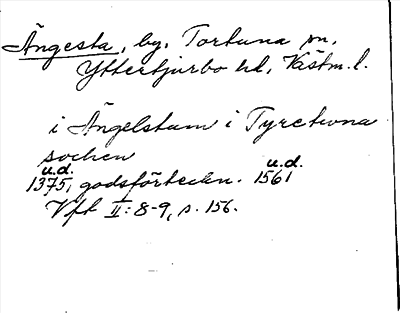 Ängesta, by, Tortuna sn,
Yttertjurbo hd, Västm. l.
i Ängelstum i Tyrctuna
sochen
u.d. u.d.
1375, godsförteckn. 1561
Vft II: 8-9, s. 156.